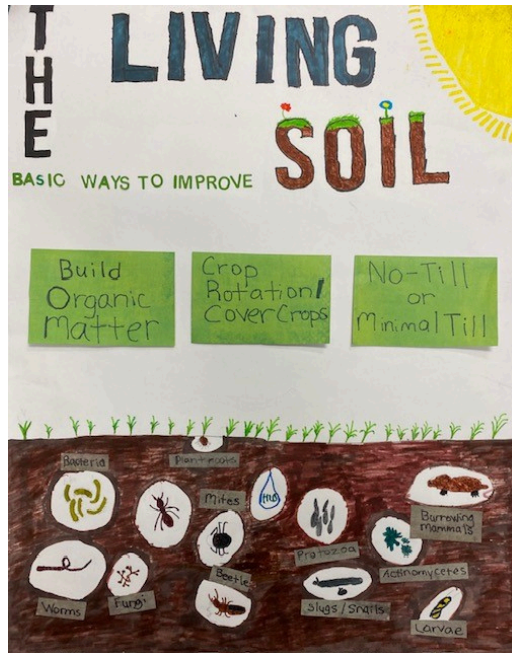 THE
LIVING
SOIL
BASIC WAYS TO IMPROVE
Build
Organic
Matter
Crop
Rotation/
Cover Crops
No-Till
or
Minimal Till
Bacteria
Plant roots
Mites
H2O
Protozoa
Burrowing
mammals
Actinomycetes
Worms
Fungi
Beetle
Slugs/Snails
Larvae